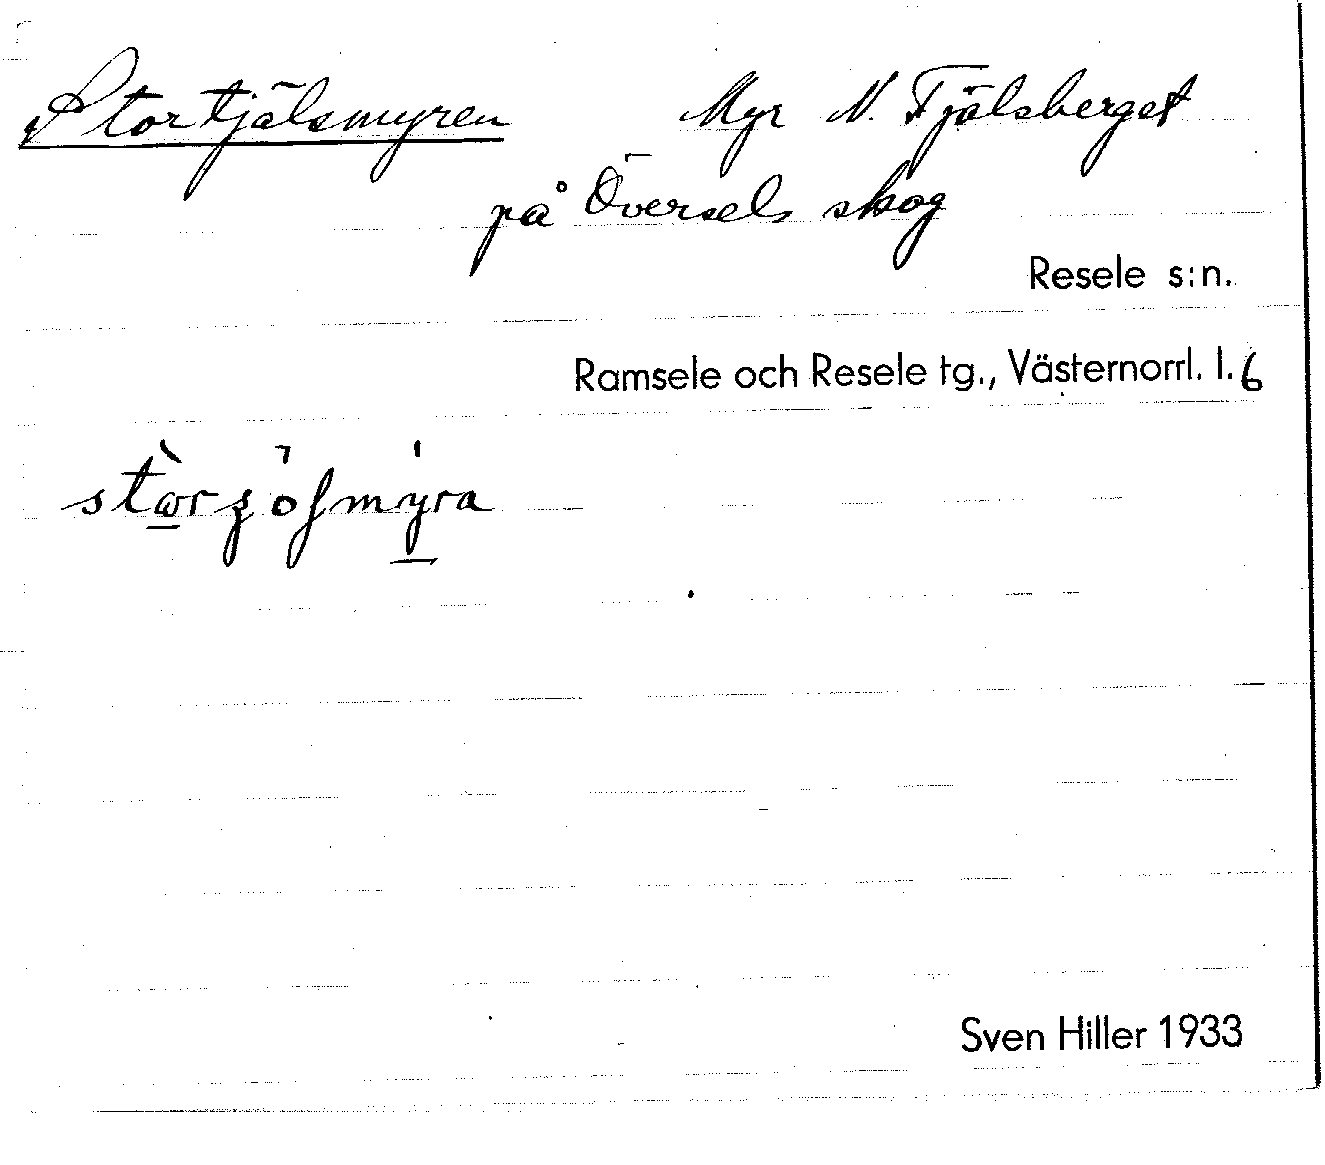 Stortjälsmyren Myr N. Tjälsberget
på Översels skog
Resele s:n.
Ramsele och Resele tg., Västernorrl. l. 6
Sven Hiller 1933